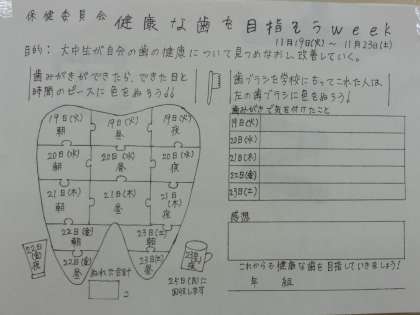 保健委員会
健康な歯を目指そうweek
11月19日(火) ～ 11月23日(土)
目的：大中生が自分の歯の健康について見つめなおし、改善していく。
歯みがきができたら、できた日と
時間のピースに色をぬろう!!
歯ブラシを学校にもってこれた人は、
左の歯ブラシに色をぬろう!
歯みがきで気を付けたこと
19日(火)
20日(水)
21日(木)
22日(金)
23日(土)
19日(火)
朝
19日(火)
昼
19日(火)
夜
20日(水)
朝
20日(水)
昼
20日(水)
夜
21日(木)
朝
21日(木)
昼
21日
(木)
夜
22日(金)
朝
22日(金)
昼
22日
(金)
夜
23日(土)
朝
23日(土)
昼
23日(土)
夜
ぬれた合計
コ
25日(月)に
回収します
感想
これからも健康な歯を目指していきましょう!
年 組